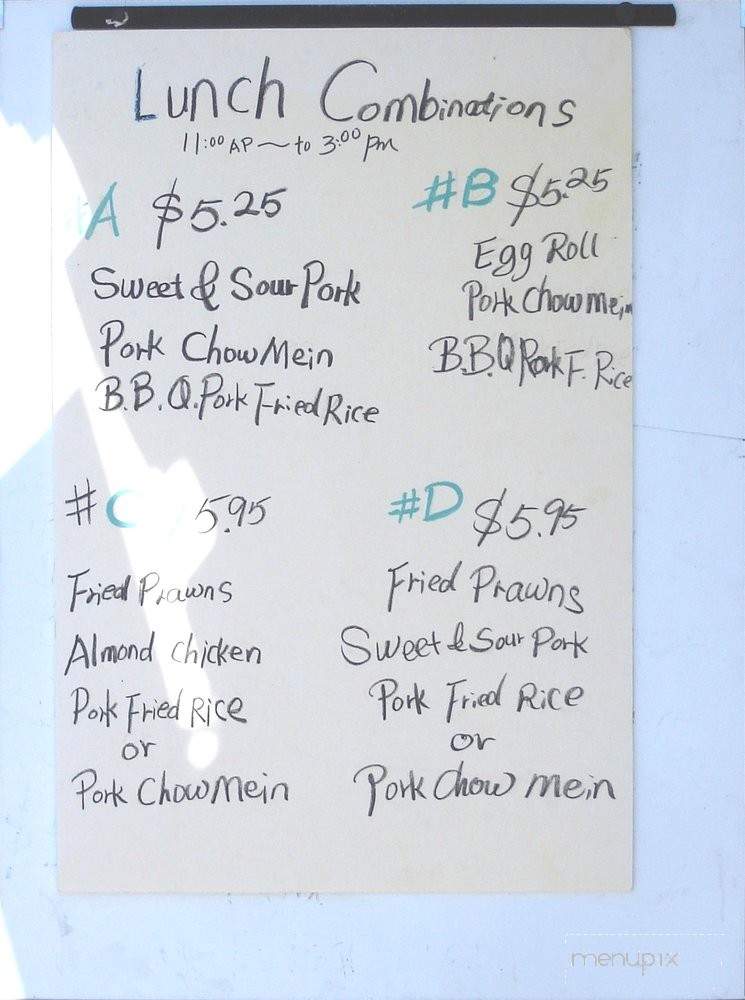 Lunch Combinations
11:00 AP ~ to 3:00 pm
#A $5.25
Sweet & Sour Pork
Pork Chow Mein
B.B.Q. Pork Fried Rice
#B $5.25
Egg Roll
Pork Chow mein
B.B.Q Pork F. Rice
#C 5.95
Fried Prawns
Almond chicken
Pork Fried Rice
or
Pork Chow Mein
#D $5.95
Fried Prawns
Sweet & Sour Pork
Pork Fried Rice
or
Pork Chow mein
menupix